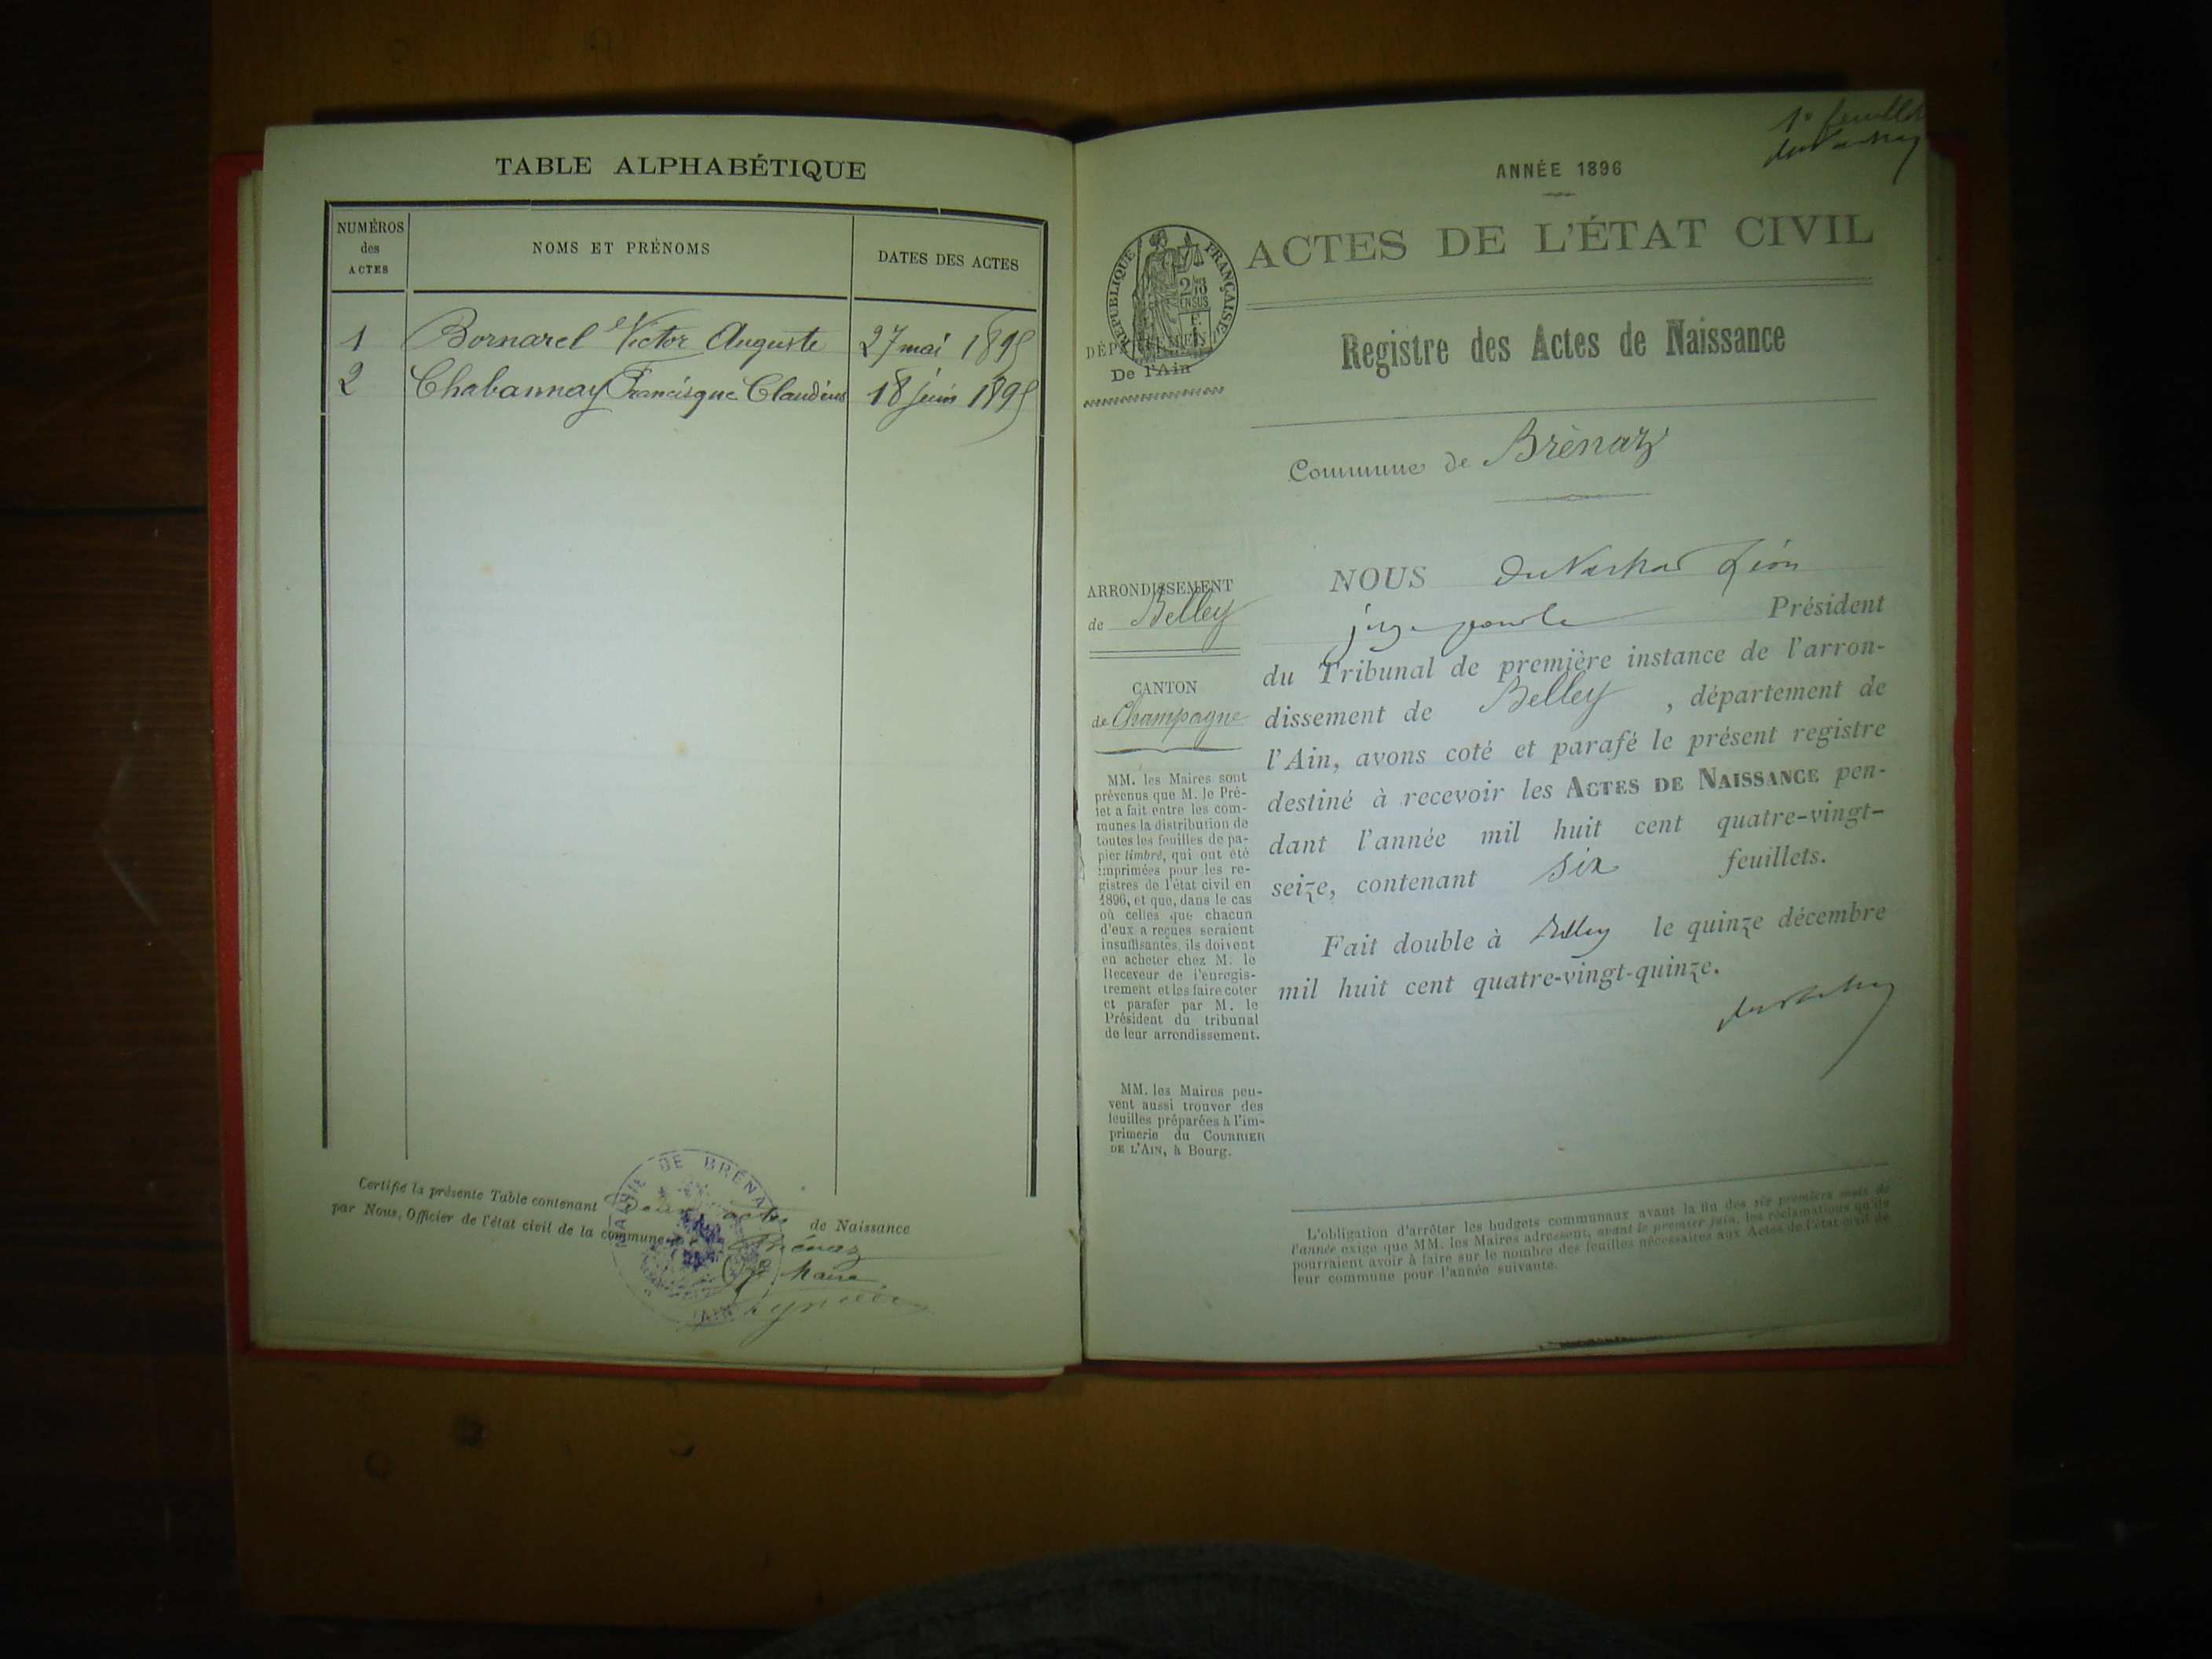 TABLE ALPHABÉTIQUE
NUMÉROS
des
ACTES
NOMS ET PRÉNOMS
DATES DES ACTES
1 Bornarel Victor Auguste 27 mai 1895
2 Chabannay Francisque Claudius 18 juin 1895
Certifié la présente Table contenant deux actes de Naissance
par Nous, Officier de l'état civil de la commune de Brénaz
Le Maire
MAIRIE DE BRÉNAZ
AIN
1e feuillet
ANNÉE 1896
ACTES DE L'ÉTAT CIVIL
RÉPUBLIQUE FRANÇAISE
De l'Ain
Registre des Actes de Naissance
Commune de Brénaz
ARRONDISSEMENT
de Belley
CANTON
de Champagne
MM. les Maires sont
prévenus que M. le Pré-
fet a fait entre les com-
munes la distribution de
toutes les feuilles de pa-
pier timbré, qui ont été
imprimées pour les re-
gistres de l'état civil en
1896, et que, dans le cas
où celles que chacun
d'eux a reçues seraient
insuffisantes, ils doivent
en acheter chez M. le
Receveur de l'enregis-
trement et les faire coter
et parafer par M. le
Président du tribunal
de leur arrondissement.
MM. les Maires peu-
vent aussi trouver des
feuilles préparées à l'im-
primerie du COURRIER
DE L'AIN, à Bourg.
NOUS Léon
juge pour le Président
du Tribunal de première instance de l'arron-
dissement de Belley, département de
l'Ain, avons coté et parafé le présent registre
destiné à recevoir les ACTES DE NAISSANCE pen-
dant l'année mil huit cent quatre-vingt-
seize, contenant six feuillets.
Fait double à Belley le quinze décembre
mil huit cent quatre-vingt-quinze.
L'obligation d'arrêter les budgets communaux avant la fin des six premiers mois de
l'année exige que MM. les Maires adressent, avant le premier juin, les réclamations qu'ils
pourraient avoir à faire sur le nombre des feuilles nécessaires aux Actes de l'état civil de
leur commune pour l'année suivante.